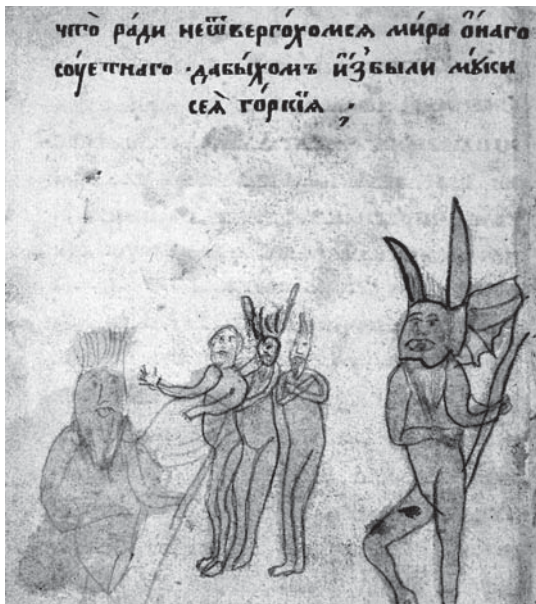 что̀ ра́ди неѿверго́хомсѧ ми́ра о҆́наго
соуетнаго · дабы́хомъ и҆́збыли мꙋ́ки
сеѧ̀ го́ркїѧ ;